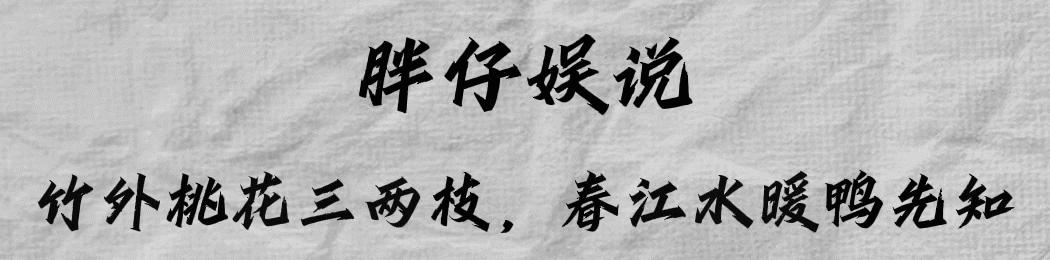 胖仔娱说
竹外桃花三两枝，春江水暖鸭先知